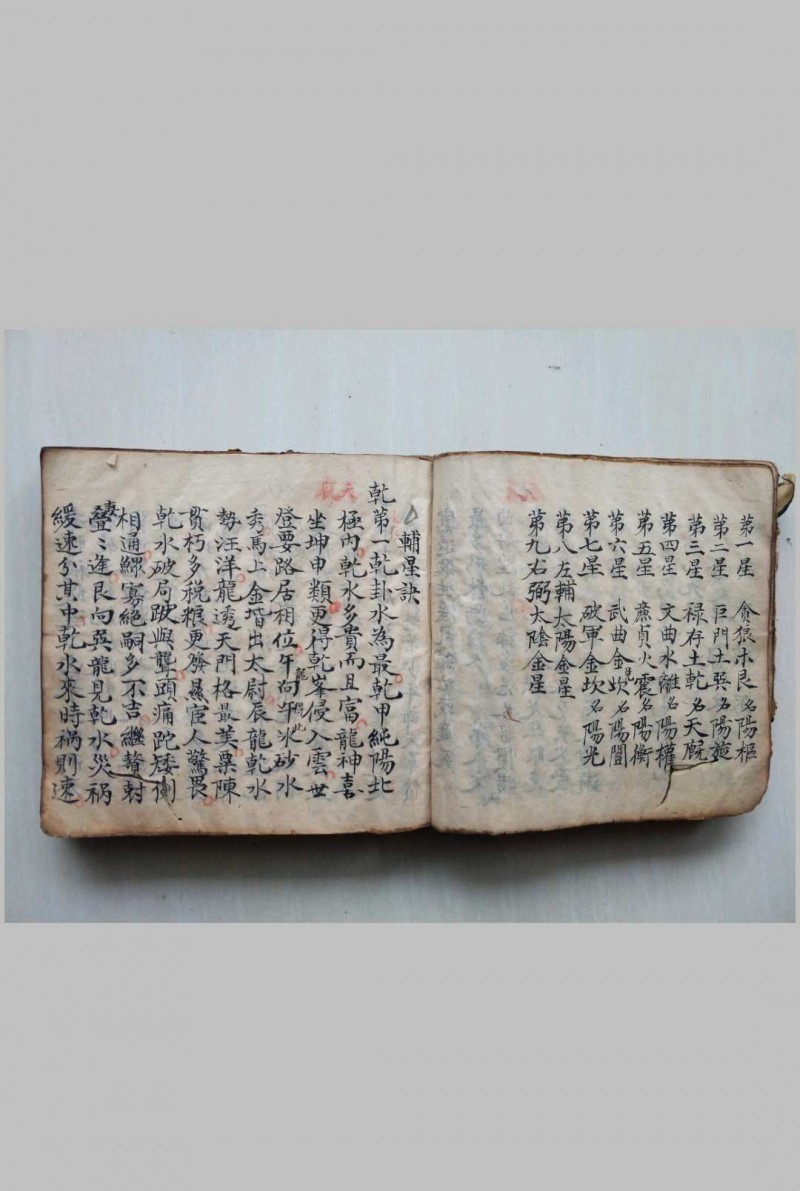 第一星 貪狼木艮名陽樞
第二星 巨門土巽名陽璇
第三星 禄存土乾名天
第四星 文曲水離名陽權
第五星 廉貞火震名陽衡
第六星 武曲金名陽闓
第七星 破軍金坎名陽光
第八左輔太陽金星
第九右弼太陰金星
輔星訣
乾第一乾卦水為最乾甲純陽北
極内乾水多貴而且富龍神喜
坐坤申類更得乾峯侵入雲世
登要路居相位午向午水砂水
秀馬上金堦出太尉辰龍乾水
勢汪洋龍透天門格最美粟陳
贯朽多税粮更發縣宦人驚畏
乾水破局跛與聾頭痛跎矮
相通鰥寡絕嗣多不吉繼贅射
疊〻逢艮向巽龍見乾水災禍
緩速分其中乾水來時禍則速